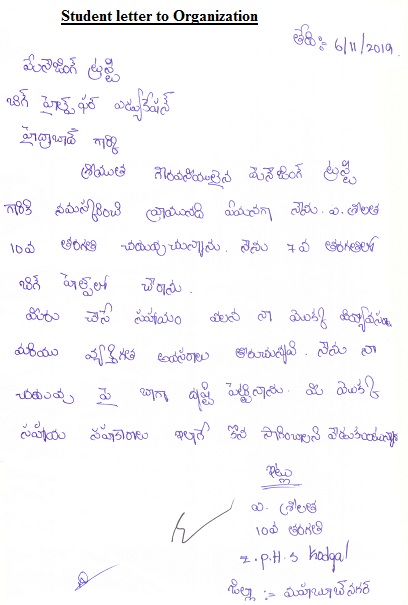 Student letter to Organization
తేది:- 6/11/2019.
మేనేజింగ్ ట్రస్టీ
బిగ్ హెల్ప్ ఫర్ ఎడ్యుకేషన్
హైద్రాబాద్ గార్కి
శ్రీయుత గౌరవనీయులైన మేనేజింగ్ ట్రస్టీ
గారికి నమస్కరించి వ్రాయునది ఏమనగా నేను. ఎ. శ్రీలత
10వ తరగతి చదువుచున్నాను. నేను 7వ తరగతిలో
బిగ్ హెల్ప్‌లో చేరాను.
మీరు చేసే సహాయం వలన నా యొక్క
మరియు వ్యక్తిగత అవసరాలు తీరుచున్నవి. నేను నా
చదువు పై బాగా దృష్టి పెట్టినాను. మీ యొక్క
సహాయ సహకారాలు ఇలాగే కొన సాగించాలని
ఇట్లు
ఎ. శ్రీలత
10వ తరగతి
Z.P.H.S Kodgal
జిల్లా :- మహబూబ్ నగర్